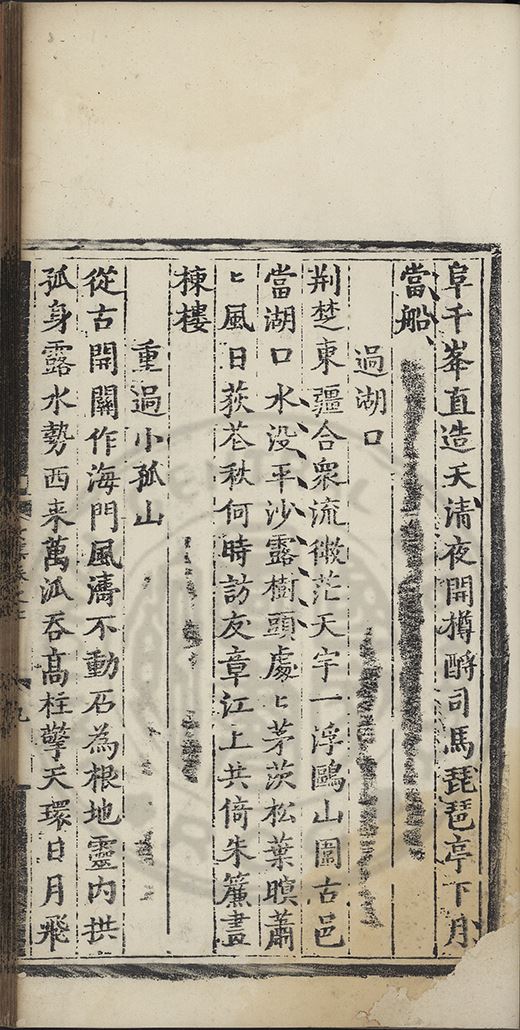 阜千峯直造天清夜開樽酹司馬琵琶亭下月
當船
過湖口
荆楚東疆合衆流微茫天宇一浮鷗山圍古邑
當湖口水没平沙露樹頭處〻茅茨松葉暝蕭
〻風日荻芲秋何時訪友章江上共倚朱簾畫
棟樓
重過小孤山
從古開關作海門風濤不動石為根地靈内拱
孤身露水勢西来萬派吞髙柱擎天環日月飛
九